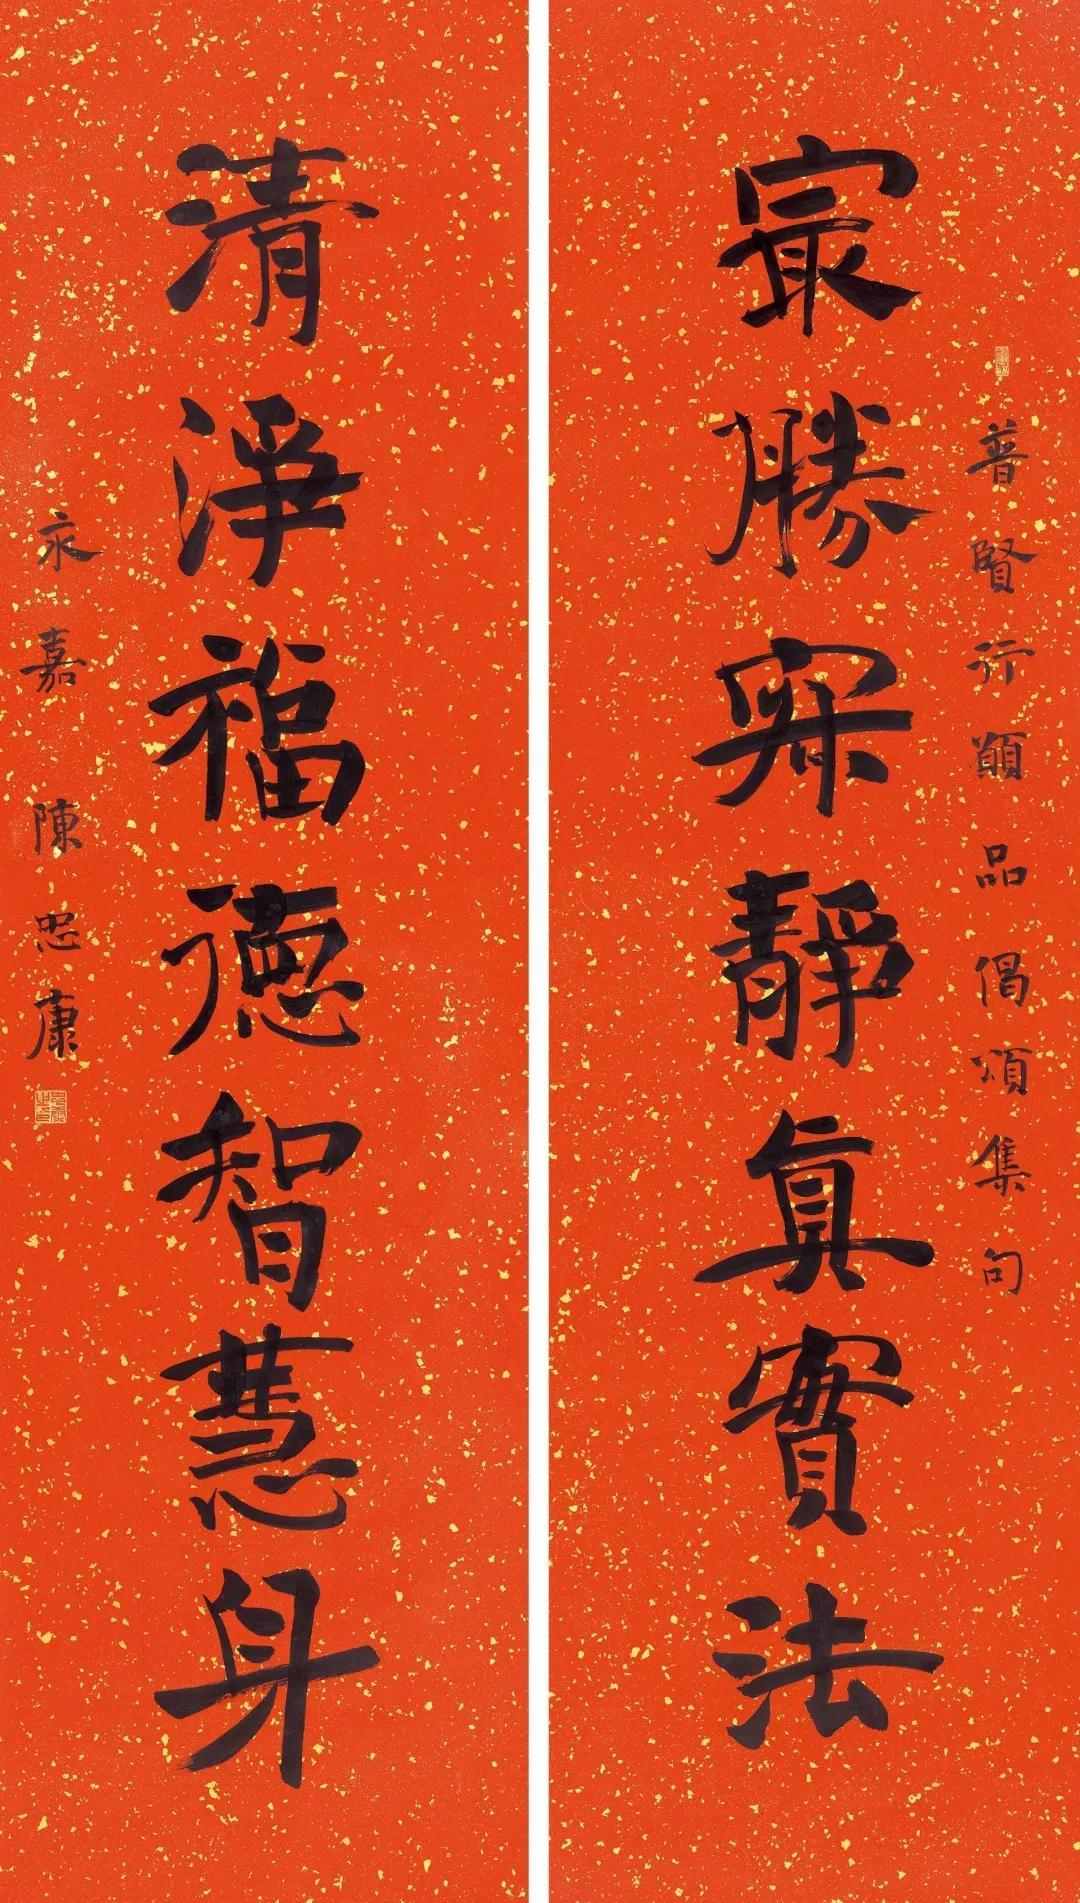 㝡勝寂靜眞實法
普賢行願品偈頌集句
清淨福德智慧身
永嘉陳忠康